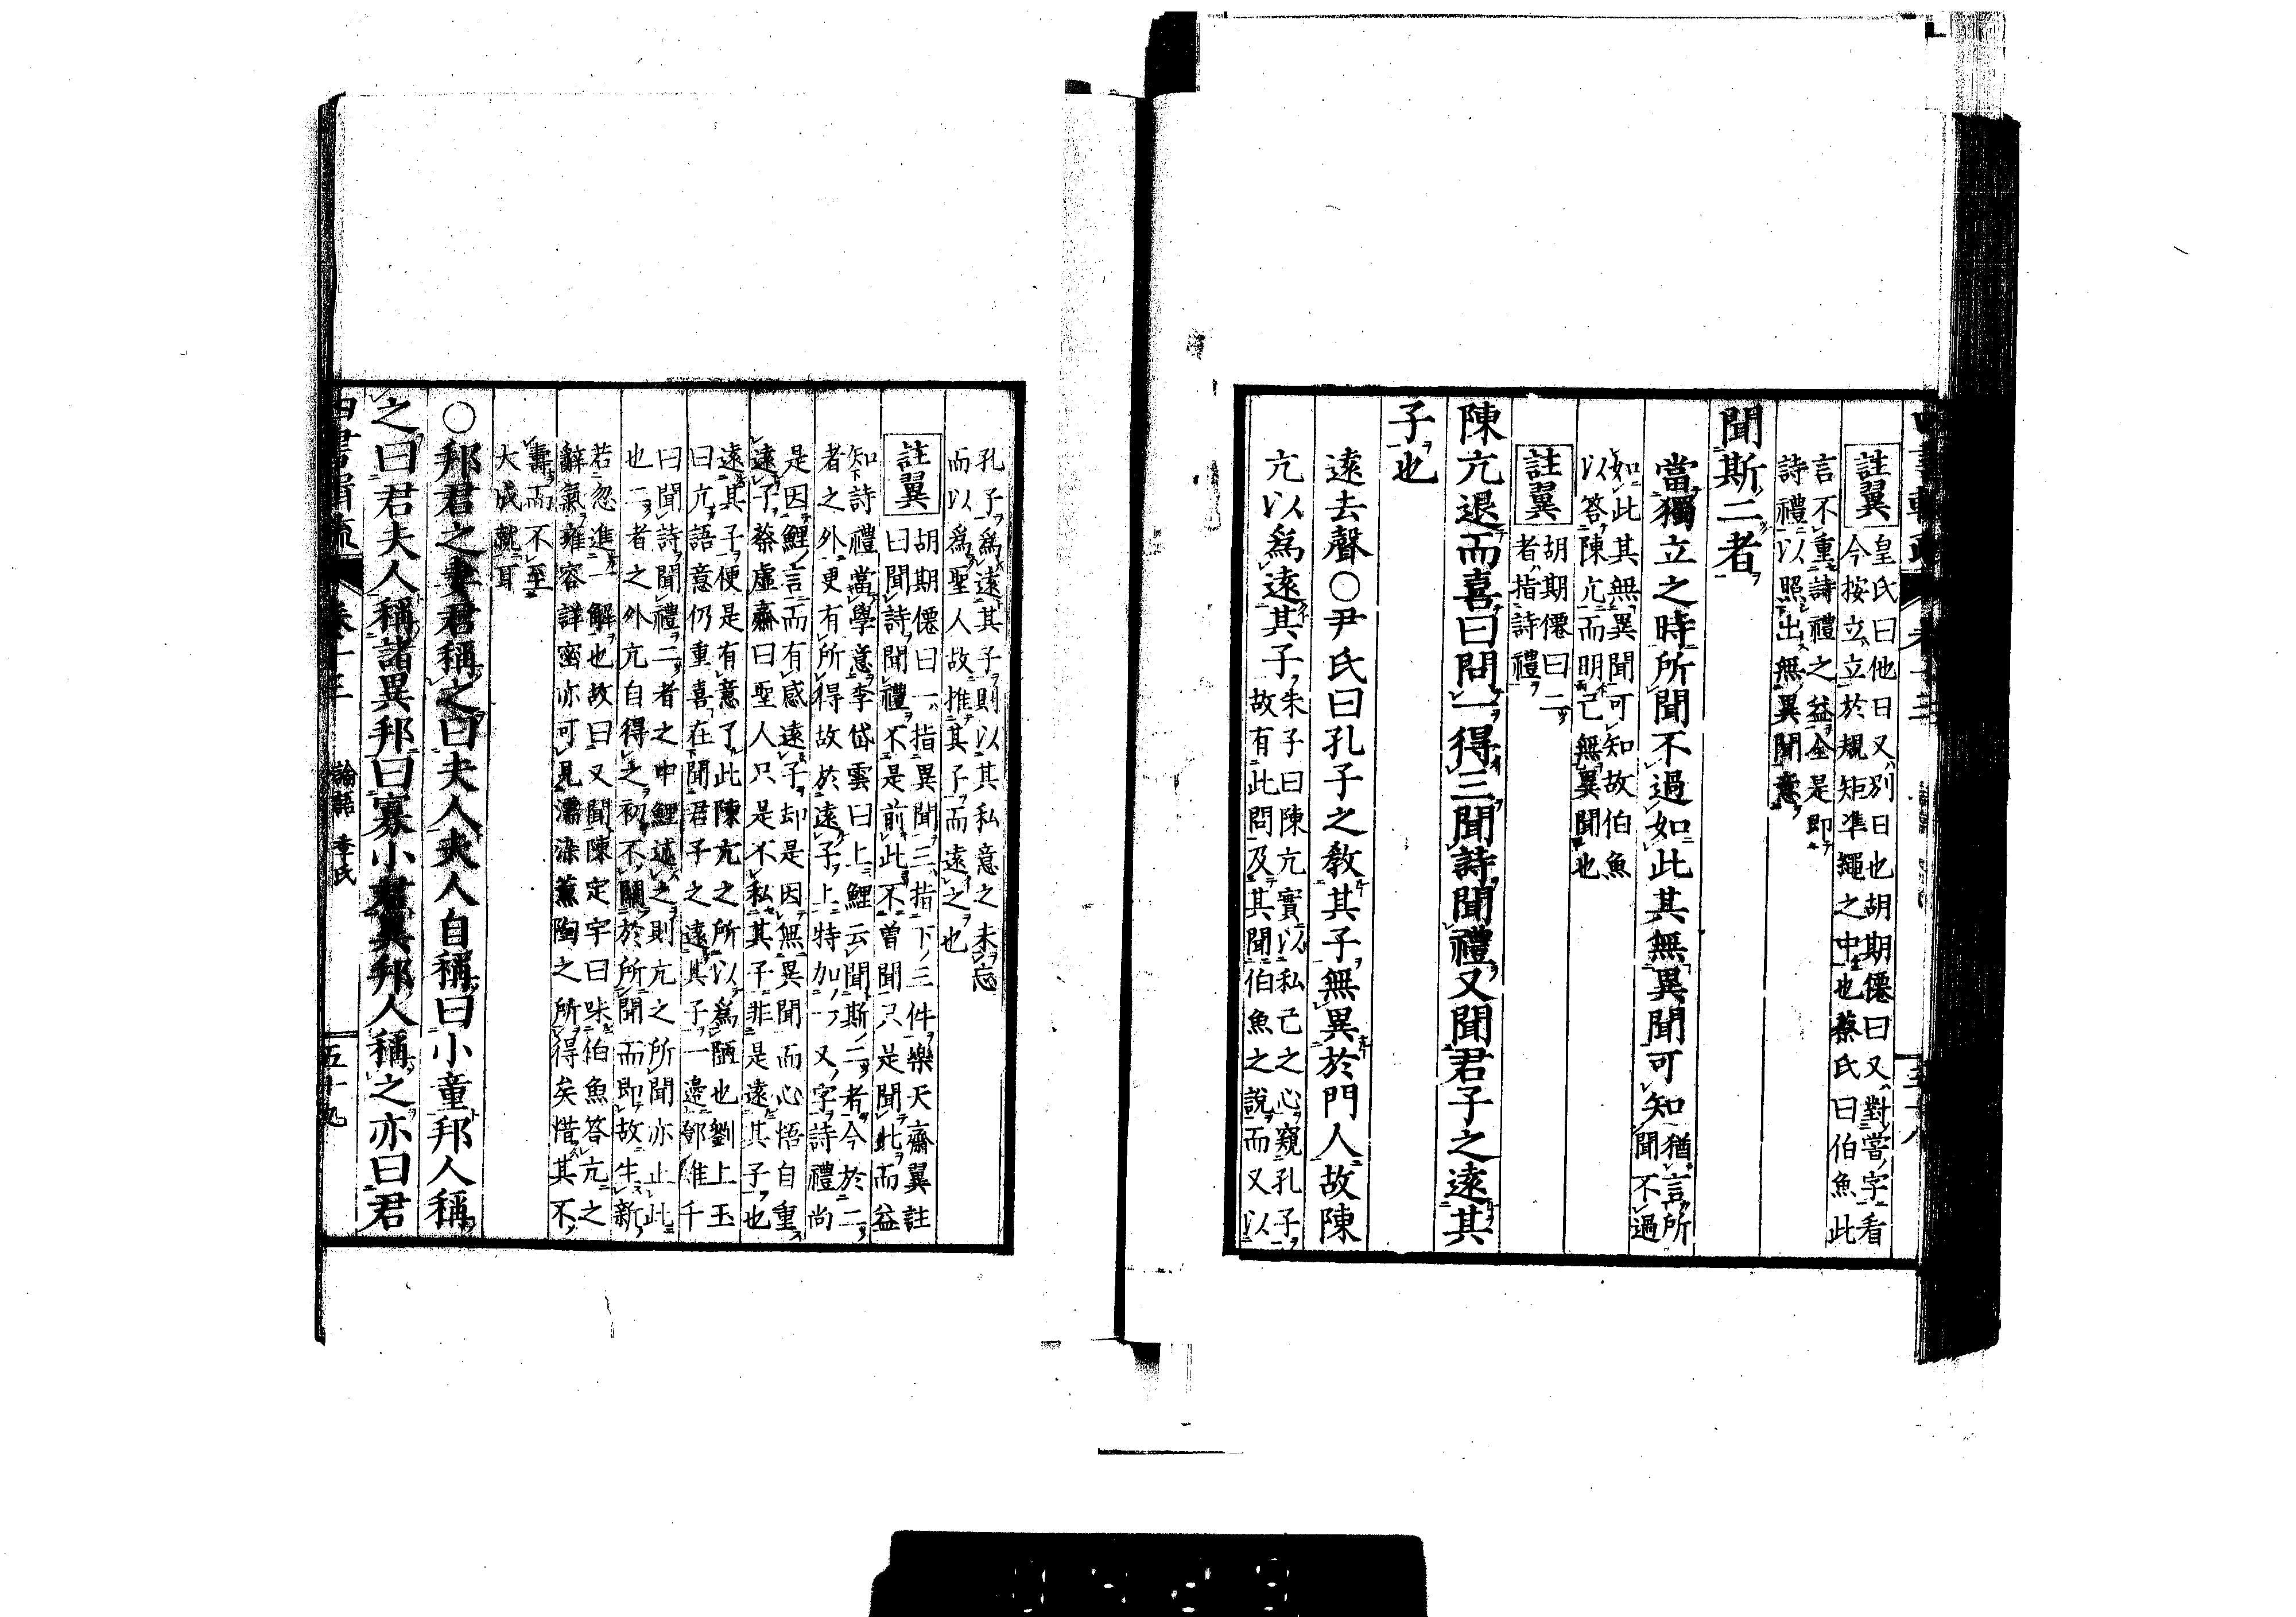 註翼
皇氏曰他日又別日也胡期僊曰又對當字看
今按立立於規矩準繩之中也蔡氏曰伯魚此
言不重詩禮之益全是即
詩禮以照出無異聞意
聞斯二者
當獨立之時所聞不過如此其無異聞可知
猶言所
聞不過
如此其無異聞可知故伯魚
以答陳亢而明己無異聞也
註翼
胡期僊曰二
者指詩禮
陳亢退而喜曰問一得三聞詩聞禮又聞君子之遠其
子也
遠去聲○尹氏曰孔子之教其子無異於門人故陳
亢以為遠其子
朱子曰陳亢實以私己之心窺孔子
故有此問及其聞伯魚之說而又以
孔子為遠其子則以其私意之未忘
而以為聖人故推其子而遠之也
註翼
胡期僊曰一指異聞三指下三件樂天齋翼註
曰聞詩聞禮不是前此不曾聞只是聞此而益
知詩禮當學意李岱雲曰上鯉云聞斯二者今於二
者之外更有所得故於遠子上特加一又字詩禮尚
是因鯉言而有感遠子却是因無異聞而心悟自重
遠子蔡虛齋曰聖人只是不私其子非是遠其子也
遠其子便是有意了此陳亢之所以為陋也劉上玉
曰亢語意仍重喜在聞君子之遠其子一邊鄧維千
曰聞詩聞禮二者之中鯉述之則亢之所聞亦止此
也二者之外亢自得之初不關於所聞而即故生新
若忽進一解也故曰又聞陳定宇曰味伯魚答亢之
辭氣雍容詳密亦可見濡染薰陶之所得矣惜其不
壽而不至
大成就耳
○邦君之妻君稱之曰夫人夫人自稱曰小童邦人稱
之曰君夫人稱諸異邦曰寡小君異邦人稱之亦曰君
卷十三
論語
季氏
五十九